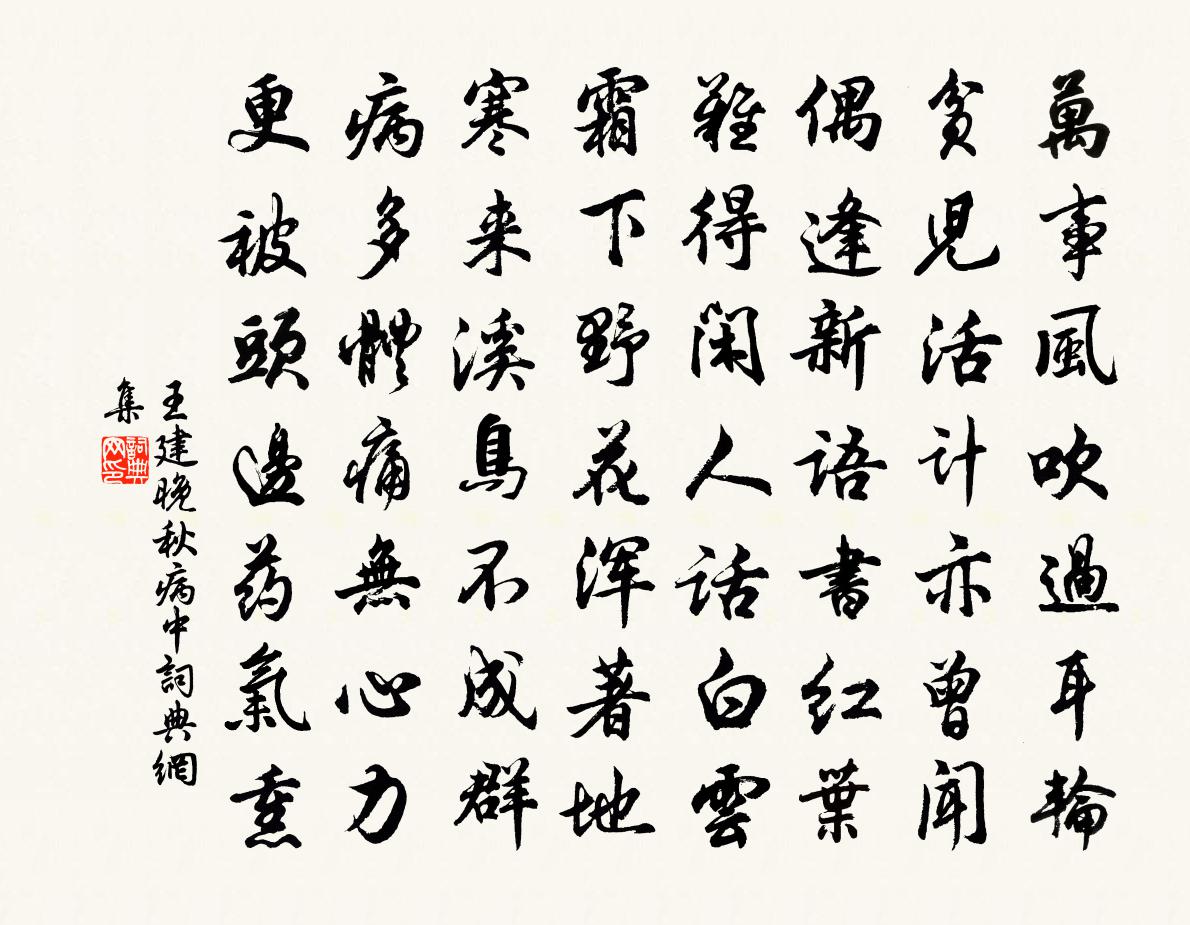 萬事風吹過耳輪
貧兒活計亦曾聞
偶逢新語書紅葉
難得閑人話白雲
霜下野花浑著地
寒来溪鳥不成群
病多體痛無心力
更被頭邊药氣熏
王建晚秋病中詞典網
集
詞典
网印